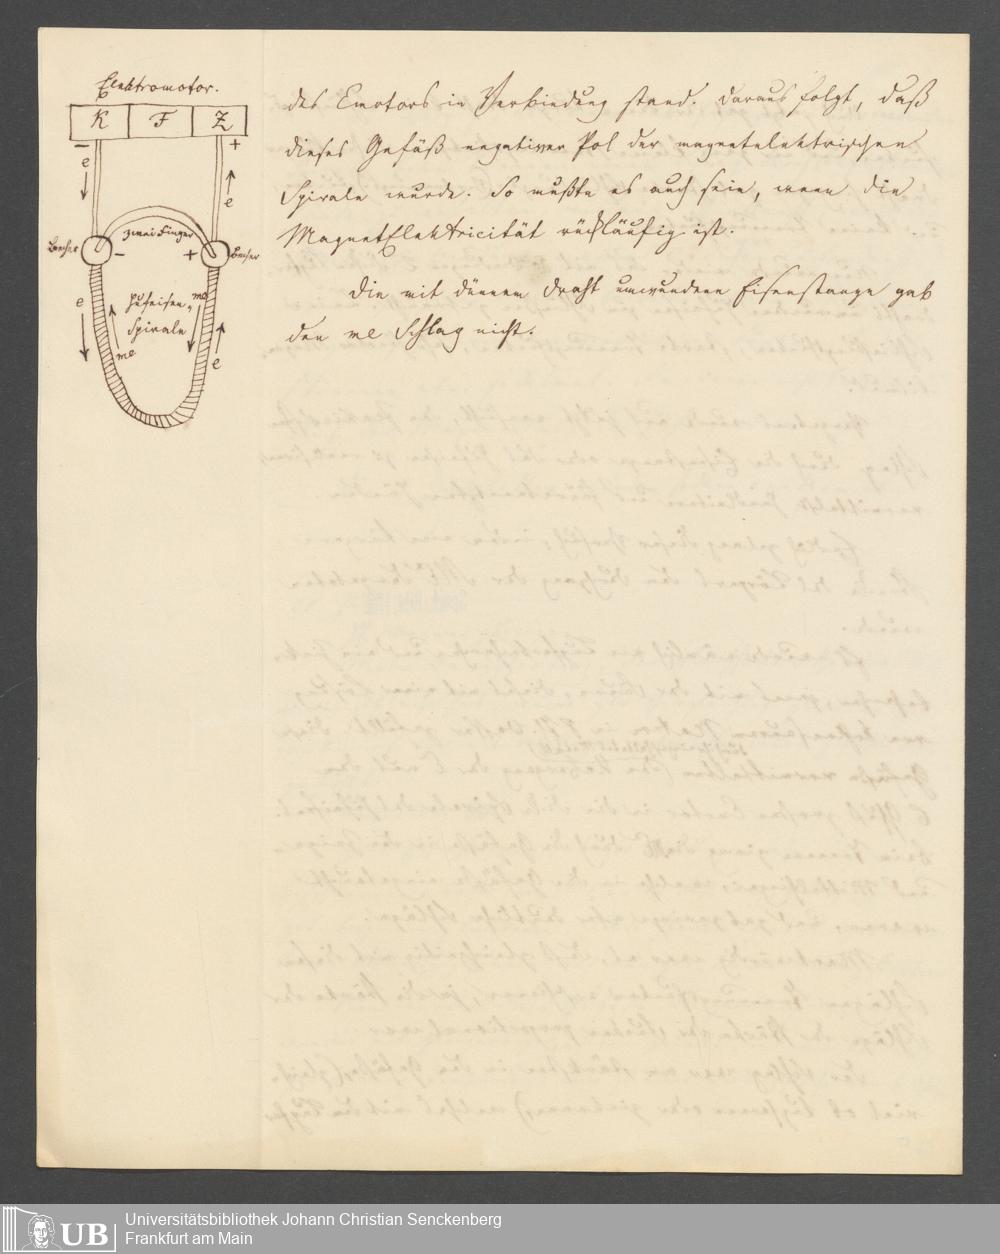 Elektromotor.
K F Z
− +
e e
zwei Finger
Becher − + Becher
e Hufeisen- me
Spirale
me e
des Emotors in Verbindung stand. Daraus folgt, daß
dieses Gefäß negativer Pol der magnetelektrischen
Spirale wurde. So mußte es auch sein, wenn die
MagnetElektricität rückläufig ist.
Die mit dünnem Draht umwundene Eisenstange gab
den me Schlag nicht.
UB
Universitätsbibliothek Johann Christian Senckenberg
Frankfurt am Main